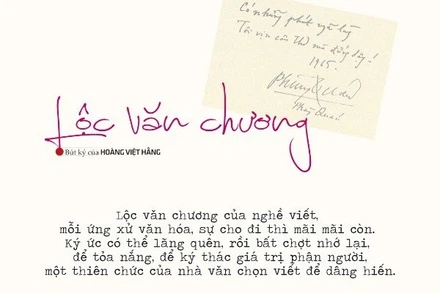 Có những phút ngã lòng
Tôi vịn câu thơ mà đứng dậy!
1965.
Phùng Quán
Phùng Quán
Lộc văn chương
Bút ký của HOÀNG VIỆT HẰNG
Lộc văn chương của nghề viết,
mỗi ứng xử văn hóa, sự cho đi thì mãi mãi còn.
Ký ức có thể lãng quên, rồi bất chợt nhớ lại,
để tỏa nắng, để ký thác giá trị phận người,
một thiên chức của nhà văn chọn viết để dâng hiến.